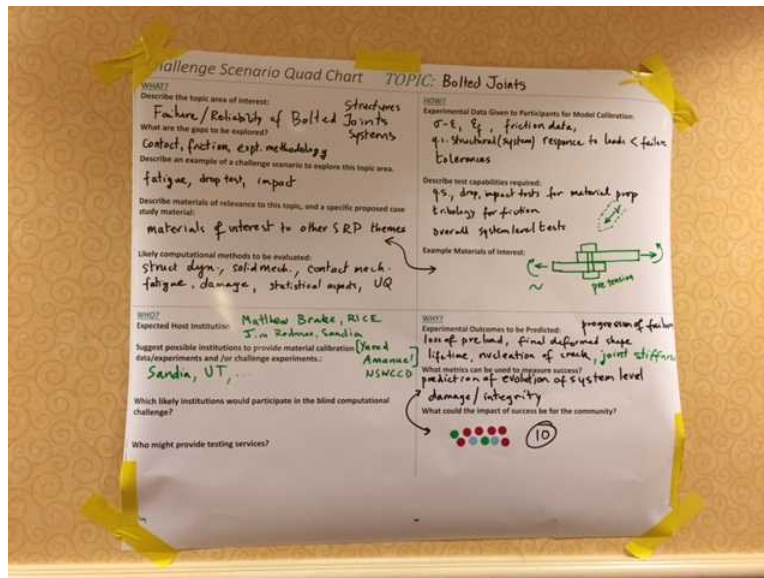 Challenge Scenario Quad Chart TOPIC: Bolted Joints
WHAT?
Describe the topic area of interest:
Failure/Reliability of Bolted Structures Joints Systems
What are the gaps to be explored?
Contact, friction, expt. methodology
Describe an example of a challenge scenario to explore this topic area.
fatigue, drop test, impact
Describe materials of relevance to this topic, and a specific proposed case
study material:
materials of interest to other SRP themes
Likely computational methods to be evaluated:
struct dyn., solid mech., contact mech.
fatigue, damage, statistical aspects, UQ
HOW?
Experimental Data Given to Participants for Model Calibration:
σ-ε, εf, friction data,
q.s. structural (system) response to loads < failure
tolerances
Describe test capabilities required:
q.s., drop, impact tests for material prop
tribology for friction
overall system level tests
Example Materials of Interest:
pretension
WHO?
Expected Host Institution: Matthew Brake, RICE
Jim Redmond, Sandia
Suggest possible institutions to provide material calibration
data/experiments and /or challenge experiments.:
[Yared Amanuel NSWCCD]
Sandia, UT, ...
Which likely institutions would participate in the blind computational
challenge?
Who might provide testing services?
WHY?
Experimental Outcomes to be Predicted: progression of failure
loss of preload, final deformed shape
lifetime, nucleation of crack, joint stiffness
What metrics can be used to measure success?
prediction of evolution of system level
damage/integrity
What could the impact of success be for the community?
10